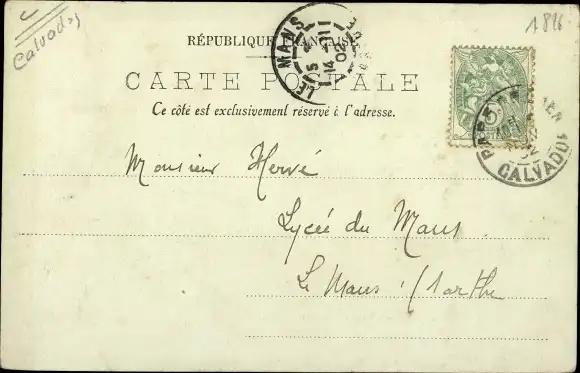 Calvados
1816
RÉPUBLIQUE FRANÇAISE
CARTE POSTALE
Ce côté est exclusivement réservé à l'adresse.
LE MANS
14
02
CALVADOS
Monsieur Hervé
Lycée du Mans
Le Mans Sarthe